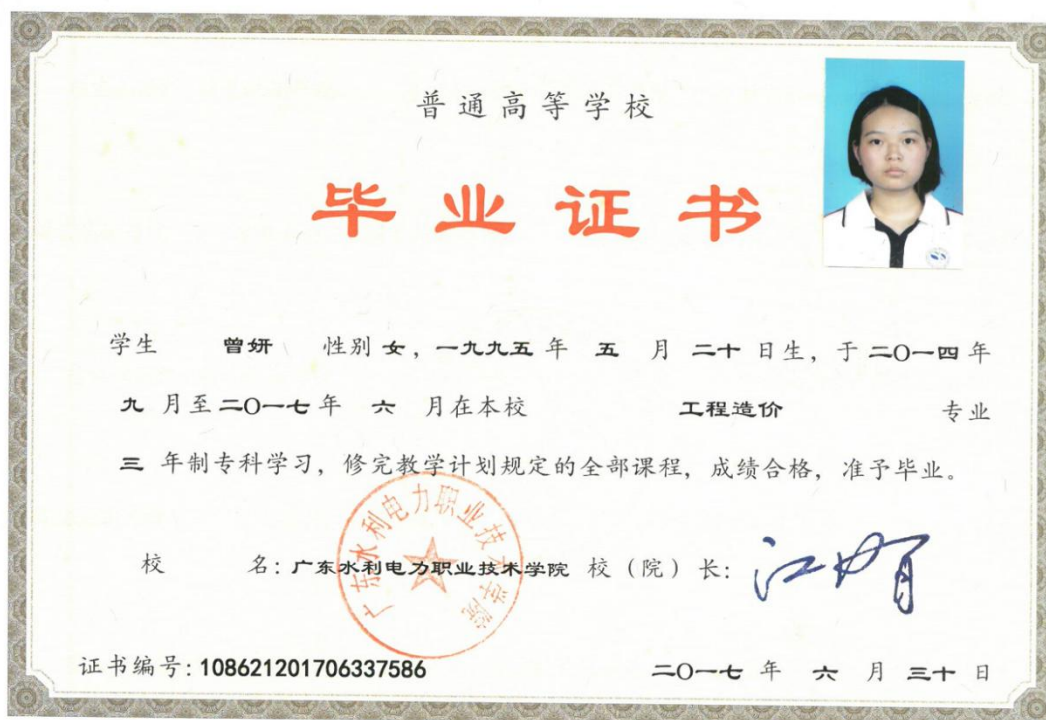 普通高等学校
毕业证书
学生 曾妍 性别 女，一九九五 年 五 月 二十 日生，于 二O一四 年
九 月至 二O一七 年 六 月在本校 工程造价 专业
三 年制专科学习，修完教学计划规定的全部课程，成绩合格，准予毕业。
广东水利电力职业技术学院
校 名：广东水利电力职业技术学院 校（院）长：
证书编号：108621201706337586 二O一七 年 六 月 三十 日